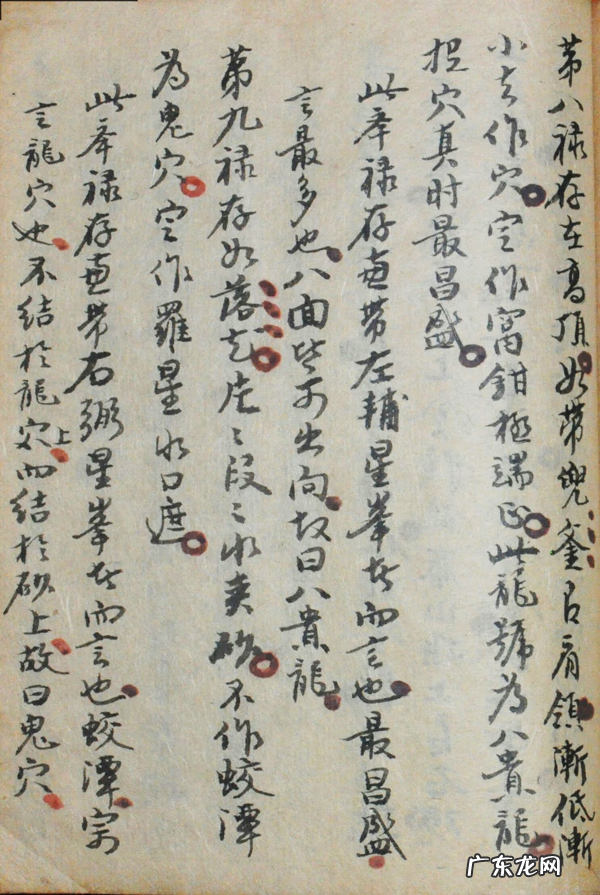 第八禄存在高頂如带兜鍪臣肩領漸低漸
小去作穴定作窩鉗極端正此龍號為八貴龍
捉穴真时最昌盛
此举禄存兼带左輔星峯者而言也最昌盛
言最多也八面皆可出向故曰八貴龍
第九禄存如落花片〻段〻水夾砂不作蛟潭
為鬼穴定作羅星水口遮
此举禄存兼带右弼星峯者而言也蛟潭宗
言龍穴也不结於龍穴上而结於砂上故曰鬼穴
广东龙网